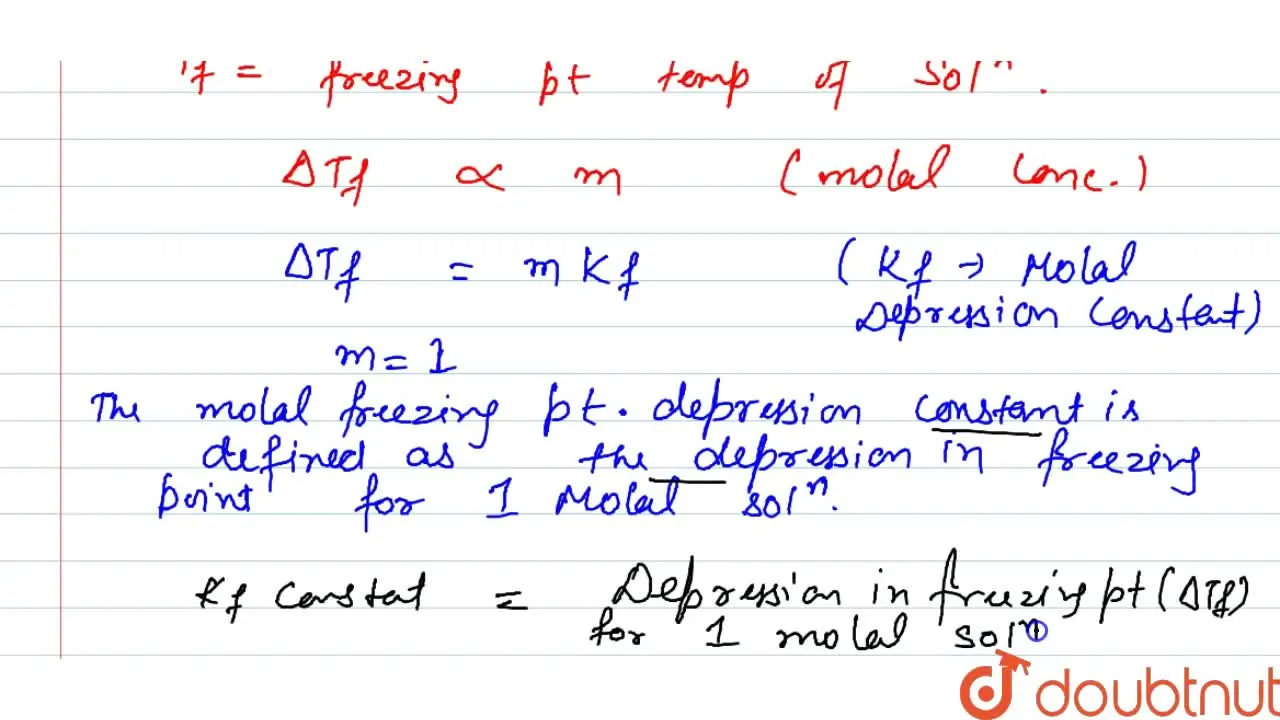 Tf = freezing pt temp of solⁿ.
ΔTf ∝ m (molal conc.)
ΔTf = m Kf (Kf → Molal
Depression constant)
m = 1
The molal freezing pt. depression constant is
defined as the depression in freezing
point for 1 Molal solⁿ.
Kf constat = Depression in freezing pt (ΔTf)
for 1 molal solⁿ
doubtnut